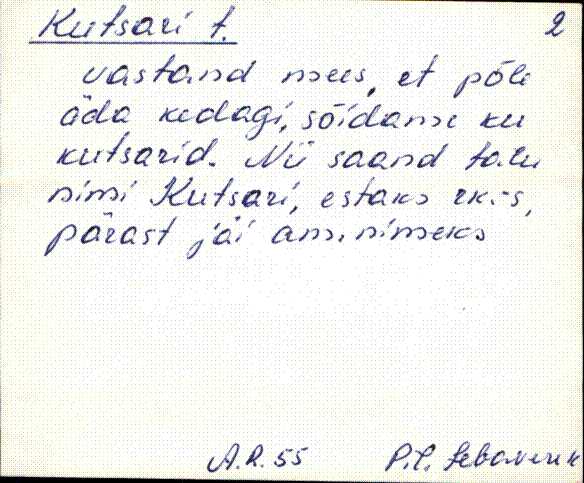 Kutsari t. 2
vastand mees, et põle
äda kedagi, sõidame ku
kutsarid. Nii saand talu
nimi Kutsari, estaks
pärast jäi ammimeks
A.R. 55